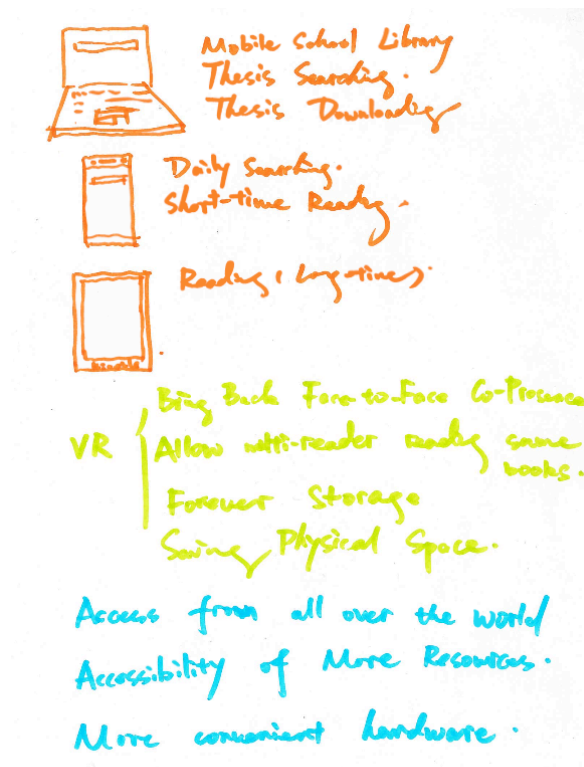 Mobile School Library
Thesis Searching.
Thesis Downloading
Daily Searching.
Short-time Reading.
Reading (Long-time).
VR
Bing Back Face-to-Face Co-Presence
Allow multi-reader reading same
books.
Forever Storage
Saving Physical Space.
Access from all over the world
Accessibility of More Resources.
More convenient hardware.